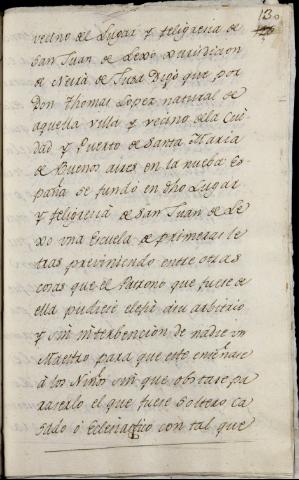 130
vecino del Lugar y feligresia de
San Juan de Lexo Jurisdicion
de Neira de Jusa Digo que por
Don Thomas Lopez natural de
aquella villa y vecino de la Ciu
dad y Puerto de Santa Maria
de Buenos aires en la nueba Es
paña se fundó en dho Lugar
y feligresia de San Juan de Le
xo una Escuela de primeras le
tras previniendo entre otras
cosas que el Patrono que fuese de
ella pudiese elejir a su arbitrio
y sin interbencion de nadie un
Maestro para que este enseñase
á los Niños sin que obstase pa
ra serlo el que fuese soltero ca
sado ó Eclesiastico con tal que